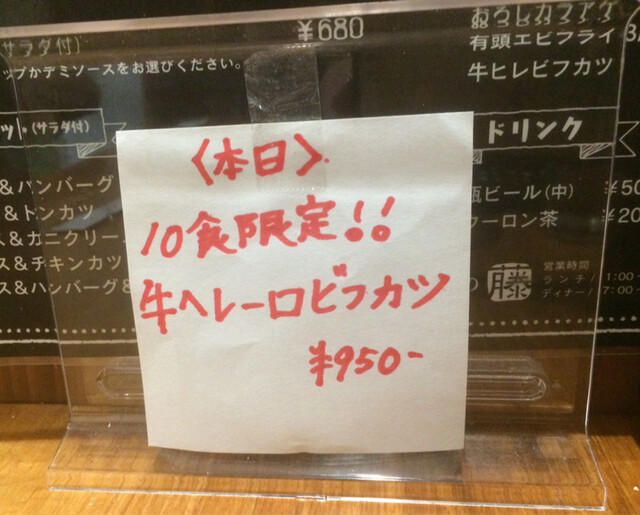 ¥680
おろしカツ
サラダ付)
有頭エビフライ
ップかデミソースをお選びください。
牛ヒレビフカツ
(サラダ付)
ドリンク
〈本日〉
10食限定!!
牛ヘレ一口ビフカツ
¥950-
&ハンバーグ
&トンカツ
ス&カニクリー
ス&チキンカツ
ス&ハンバーグ&
瓶ビール(中) ¥50
ウーロン茶 ¥20
の 藤
営業時間
ランチ/1:00-
ディナー/7:00-